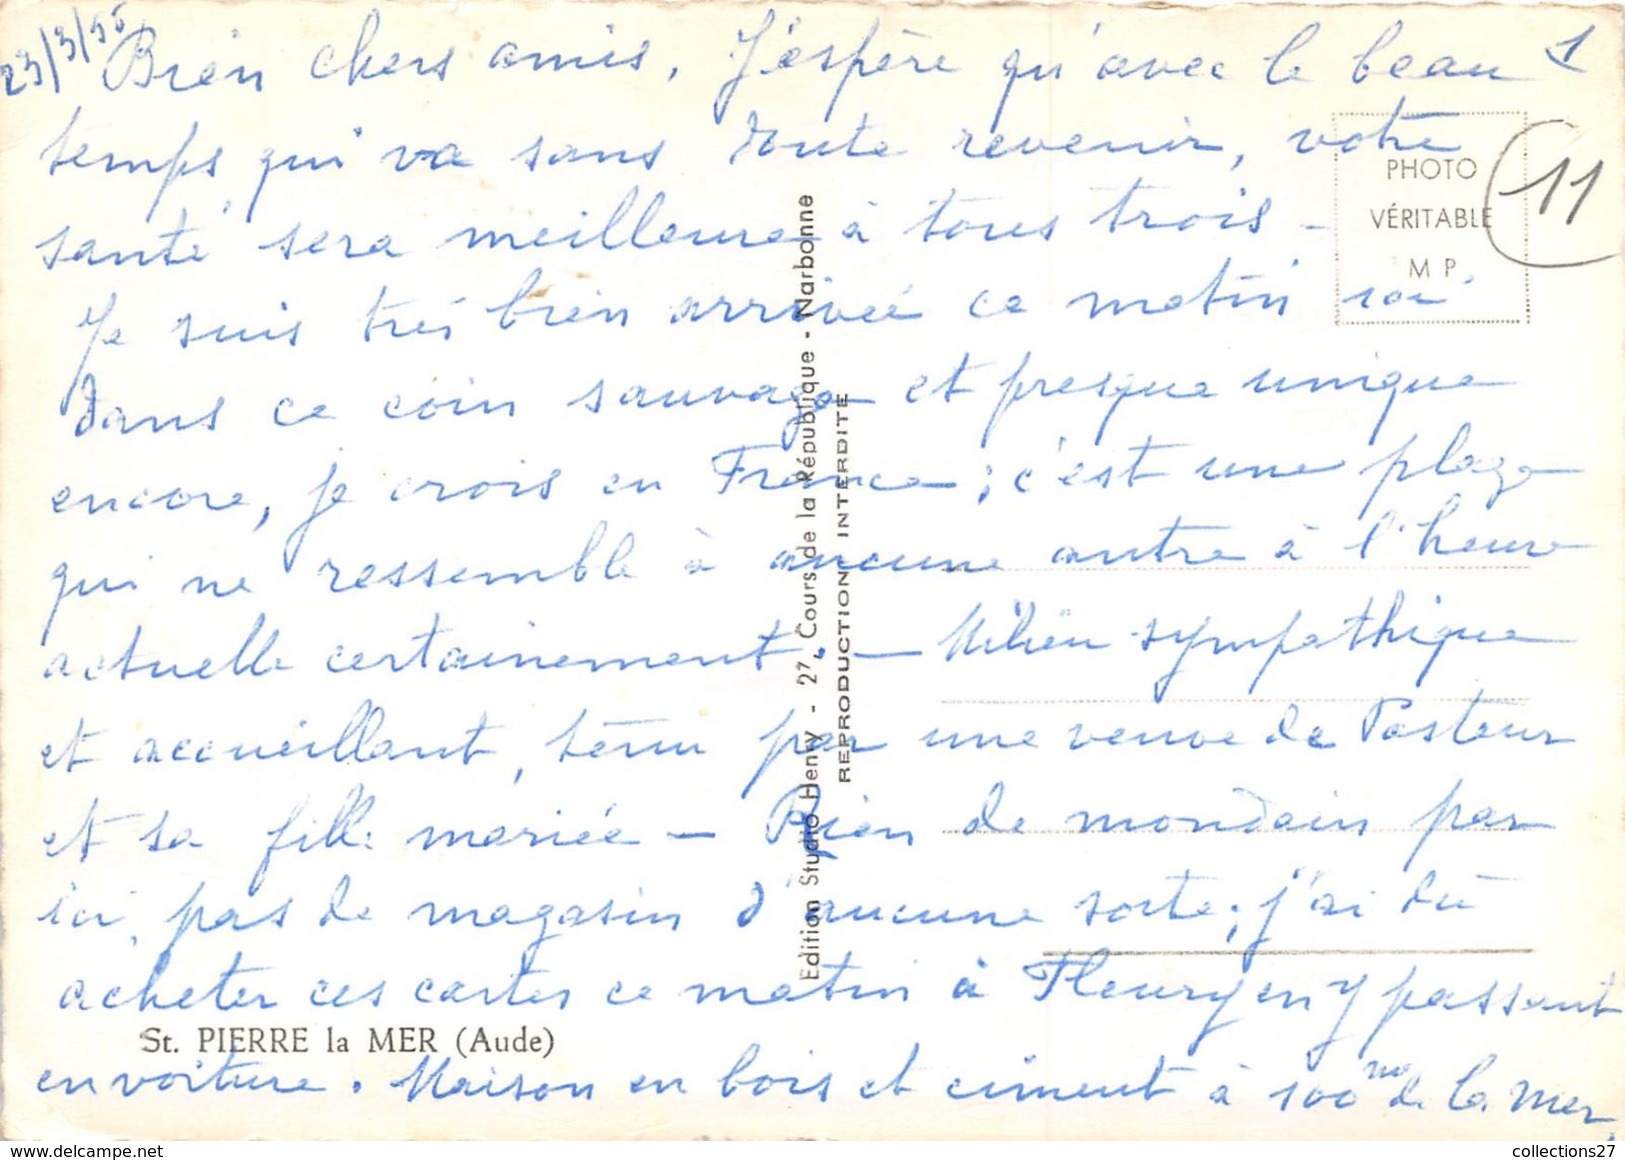 23/3/55
1
Bien chers amis, J'espère qu'avec le beau
temps, qui va sans doute revenir, votre
santé sera meilleure à tous trois -
Je suis très bien arrivée ce matin ici
dans ce coin sauvage et presque unique
encore, je crois en France ; c'est une plage
qui ne ressemble à aucune autre à l'heure
actuelle certainement. - Milieu sympathique
et accueillant, tenu par une veuve de Pasteur
et sa fille mariée - Rien de mondain par
ici, pas de magasin d'aucune sorte ; j'ai dû
acheter ces cartes ce matin à Fleury en y passant
en voiture. Maison en bois et ciment à 100 m de la mer.
PHOTO
VÉRITABLE
M P
11
Edition Studio Henry - 27, Cours de la République - Narbonne
REPRODUCTION INTERDITE
St. PIERRE la MER (Aude)
collections27